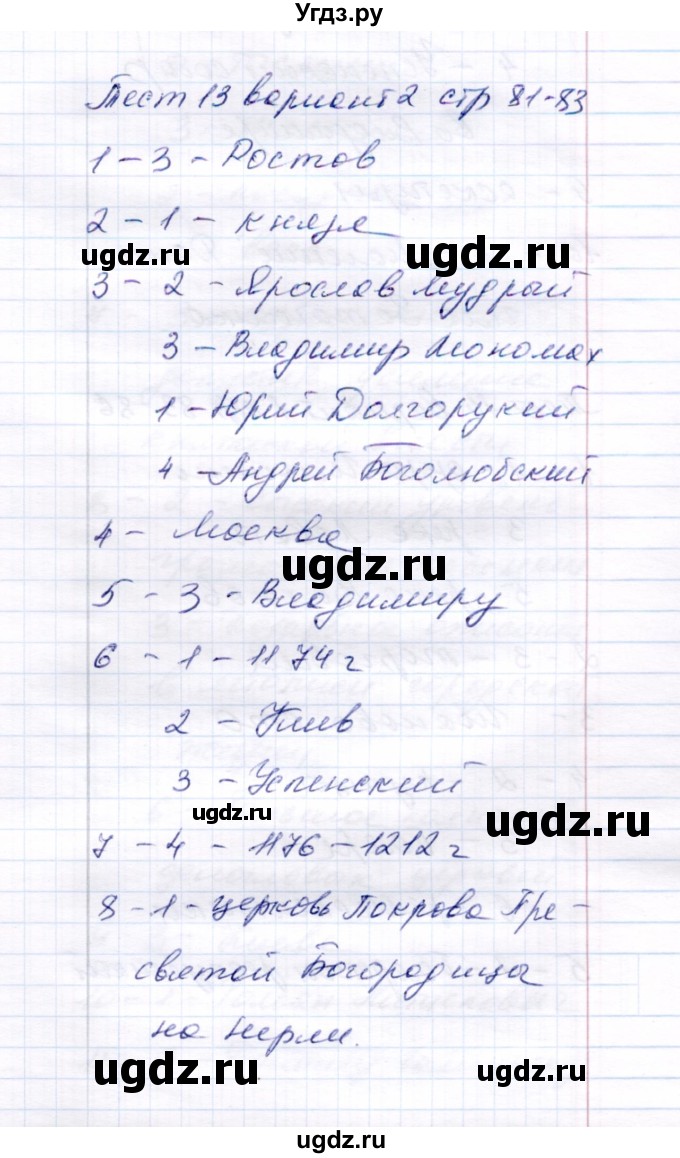 Угдз.ру
Тест 13 вариант 2 стр 81-83
1 - 3 - Ростов
2 - 1 - князя
ugdz.ru ugdz.ru
3 - 2 - Ярослав Мудрый
3 - Владимир Мономах
1 - Юрий Долгорукий
4 - Андрей Боголюбский
4 - Москва
ugdz.ru
5 - 3 - Владимиру
6 - 1 - 1174 г
2 - Киев
3 - Успенский
ugdz.ru ugdz.ru
7 - 4 - 1176 - 1212 г
8 - 1 - церковь Покрова Пре-
святой Богородицы
на Нерли.
ugdz.ru ugdz.ru
ugdz.ru